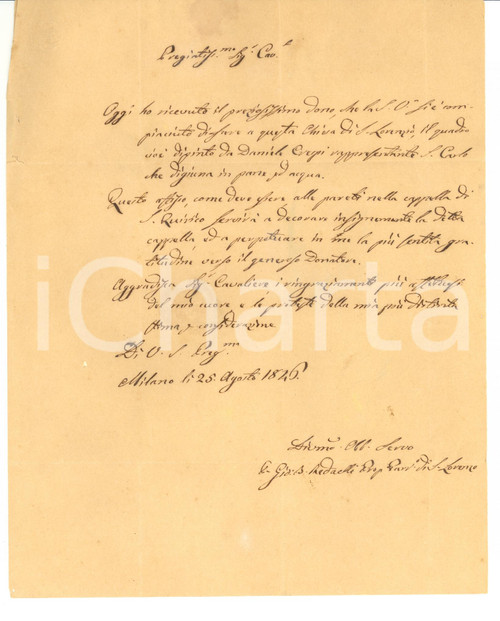 Pregiatis.mo Sig.r Cav.e
Oggi ho ricevuto il preziosissimo dono, che la S. V. si è com-
piaciuta di fare a questa Chiesa di S. Lorenzo, il quadro
cioè dipinto da Daniele Crespi rappresentante S. Carlo
che digiuna in pane ed acqua.
Questo affisso, come deve essere alle pareti nella cappella di
S. Quirico servirà a decorare insignemente la detta
cappella, ed a perpetuare in me la più sentita gra-
titudine verso il generoso Donatore.
Aggradisca Sig.r Cavaliere i ringraziamenti più affettuosi
del mio cuore e le proteste della mia più distinta
stima, e considerazione
Di V. S. Preg.ma
Milano li 25 Agosto 1846.
Divmo Obb. Servo
Gio. B. Redaelli Prep. Parr. di S. Lorenzo
iCharta